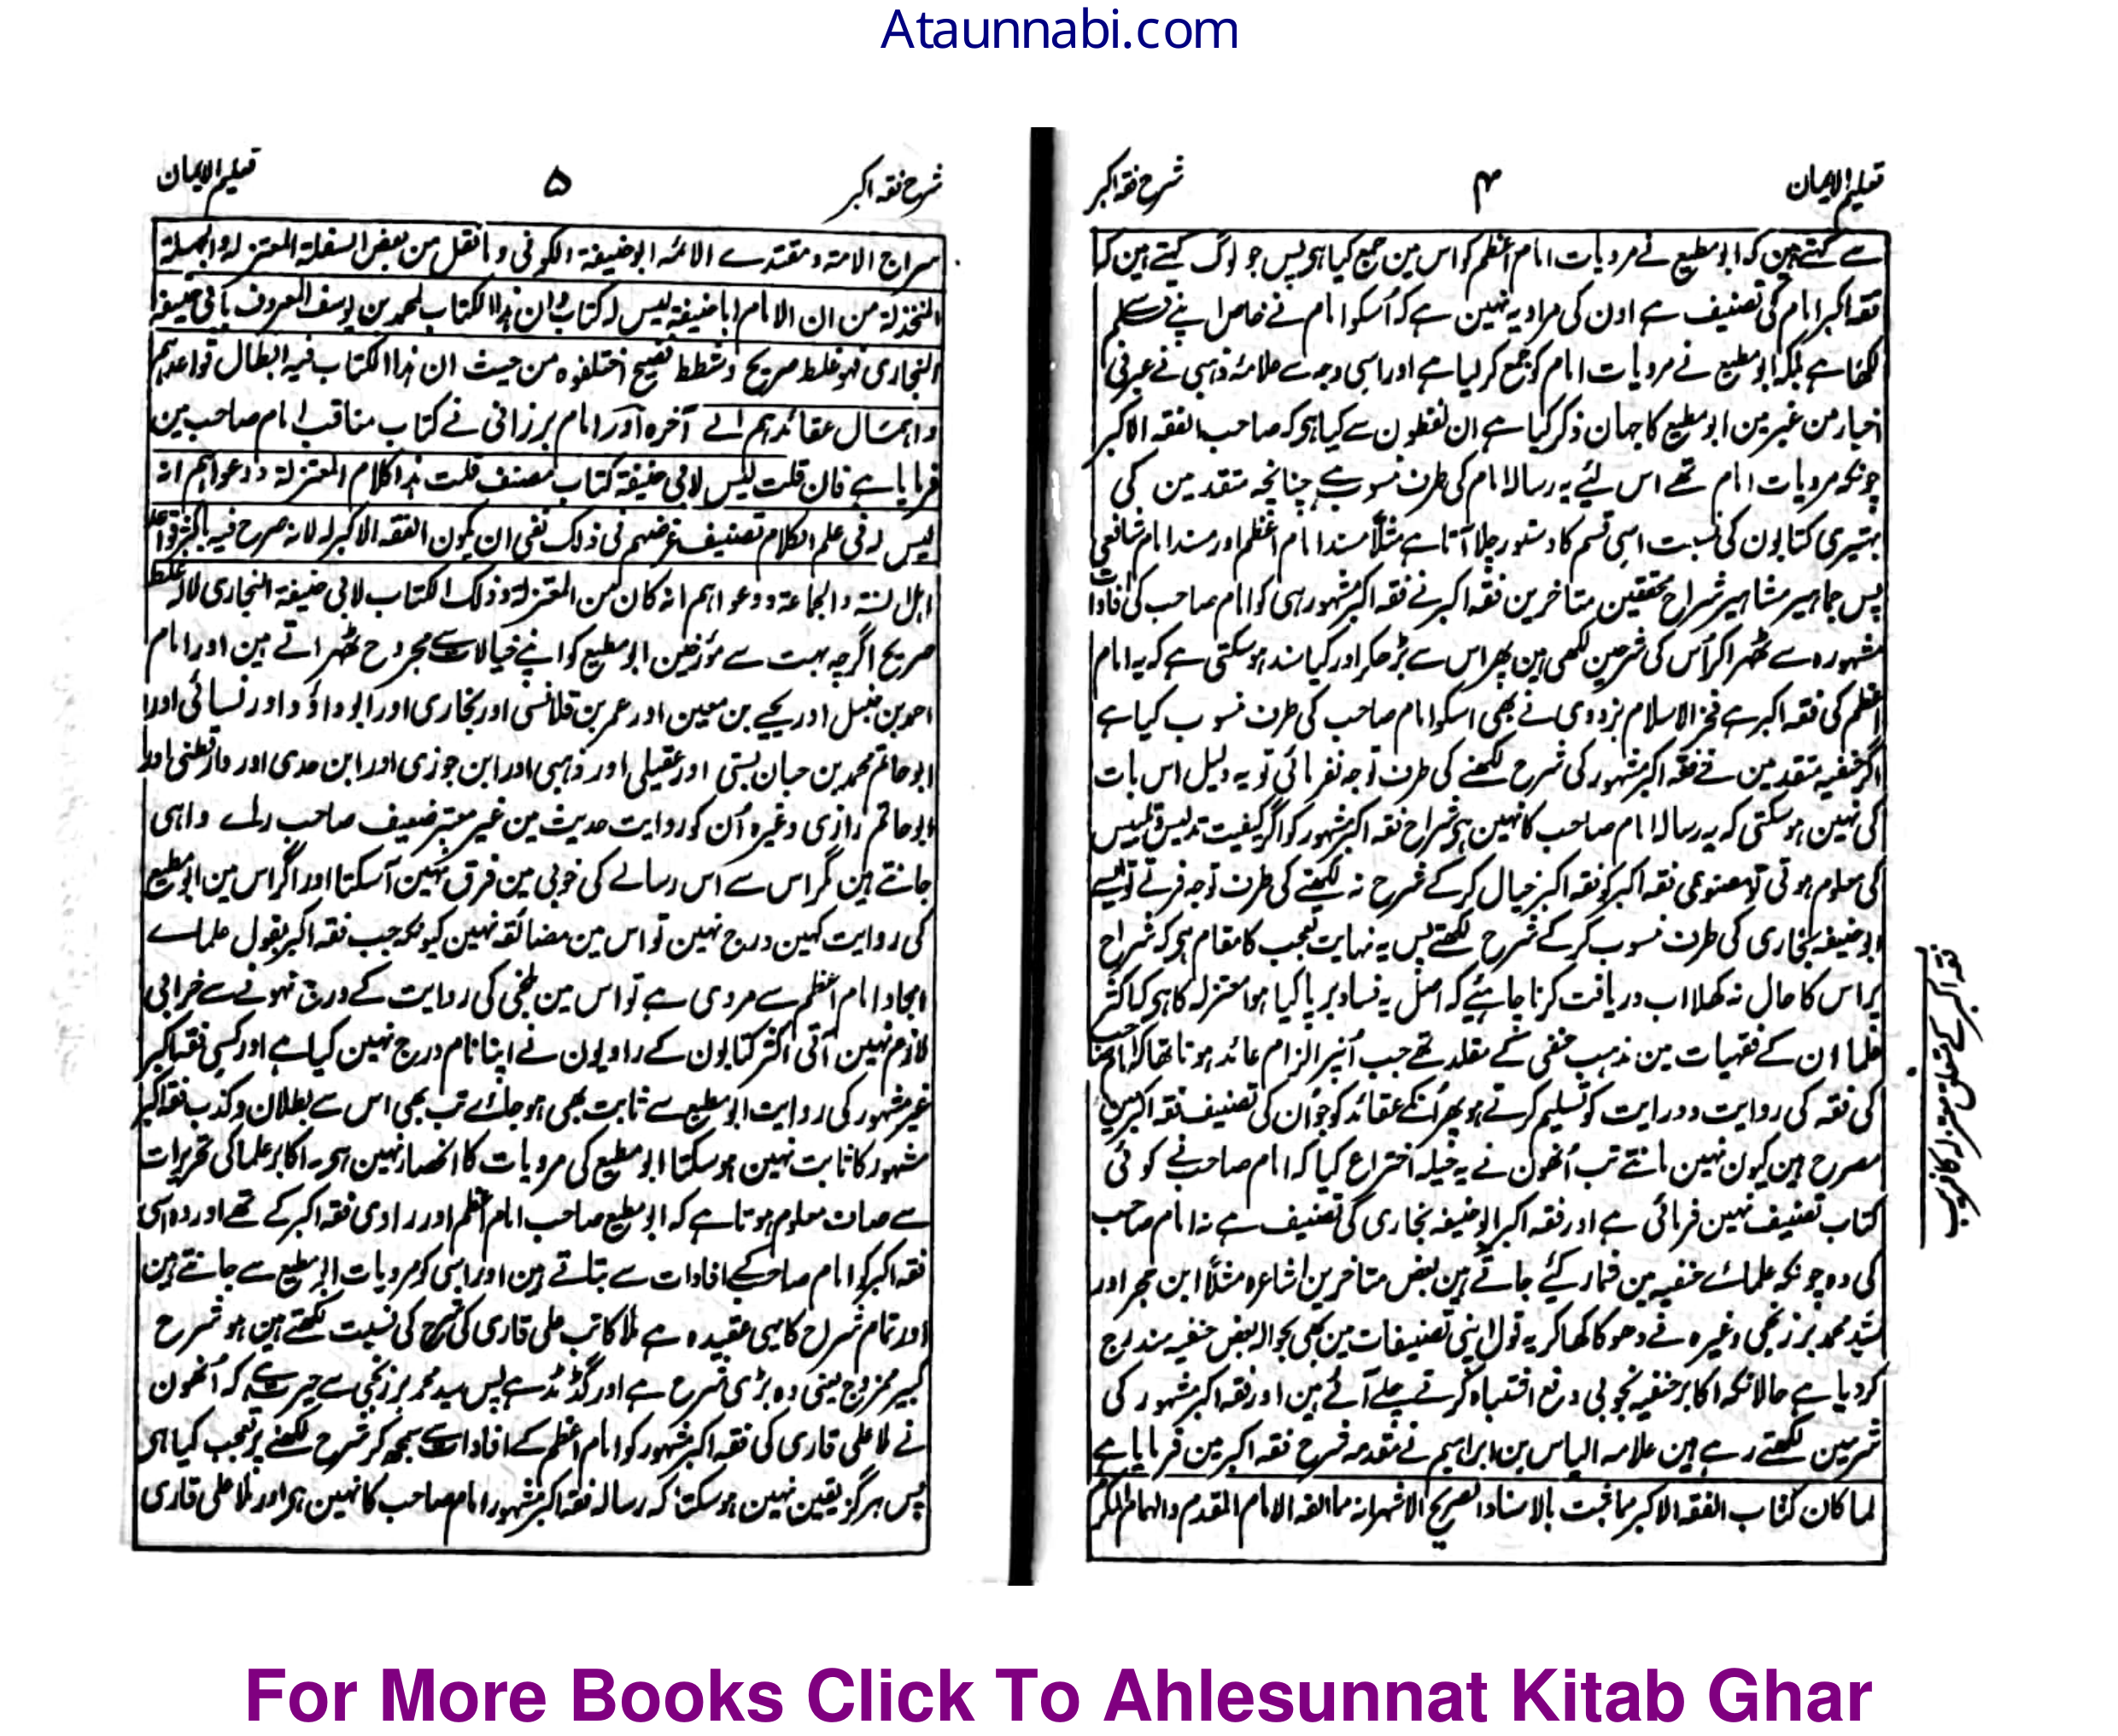 Ataunnabi.com
تعلیم الایمان
۴
شرح فقہ اکبر
سے کہتے ہین کہ ابو مطیع نے مرویات امام اعظم کو اس مین جمع کیا ہی پس جو لوگ کہتے ہین کہ
فقہ اکبر امام کی تصنیف ہے اون کی مراد یہ نہین ہے کہ اُسکو امام نے خاص اپنے قلم سے
لکھا ہے بلکہ ابو مطیع نے مرویات امام کو جمع کر لیا ہے اور اسی وجہ سے علامۂ ذہبی نے عبر فی
اخبار من غبر مین ابو مطیع کا جہان ذکر کیا ہے ان لفظون سے کیا ہی کہ صاحب الفقہ الاکبر
چونکہ مرویات امام تھے اس لیئے یہ رسالہ امام کی طرف منسوب ہے چنانچہ متقدمین کی
بہتیری کتابون کی نسبت اسی قسم کا دستور چلا آتا ہے مثلاً مسند امام اعظم اور مسند امام شافعی
پس جماہیر مشاہیر شراح محققین متاخرین فقہ اکبر نے فقہ اکبر مشہور ہی کو امام صاحب کی افادات
مشہورہ سے ٹھہرا کر اُس کی شرحین لکھی ہین پھر اس سے بڑھکر اور کیا سند ہو سکتی ہے کہ یہ امام
اعظم کی فقہ اکبر ہے فخر الاسلام بزدوی نے بھی اسکو امام صاحب کی طرف منسوب کیا ہے
اگر حنفیہ متقدمین نے فقہ اکبر مشہور کی شرح لکھنے کی طرف توجہ نفرمائی تو یہ دلیل اس بات
کی نہین ہو سکتی کہ یہ رسالہ امام صاحب کا نہین ہی شراح فقہ اکبر مشہور کو اگر کیفیت تدلیس و تلبیس
کی معلوم ہوتی تو مصنوعی فقہ اکبر کو فقہ اکبر خیال کر کے شرح نہ لکھنے کی طرف توجہ فرتے
ابو حنیفہ بخاری کی طرف منسوب کر کے شرح لکھتے پس یہ نہایت تعجب کا مقام ہی کہ شراح
پر اس کا حال نہ کھلا اب دریافت کرنا چاہیئے کہ اصل یہ فساد برپا کیا ہوا معتزلہ کا ہی کہ اکثر
علما ان کے فقہیات مین مذہب حنفی کے مقلد تھے جب اُنپر الزام عائد ہوتا تھا کہ امام صاحب
کی فقہ کی روایت و درایت کو تسلیم کرتے ہو پھر اُنکے عقائد کو جو اُن کی تصنیف فقہ اکبر مین
مصرح ہین کیون نہین مانتے تب اُنھون نے یہ حیلہ اختراع کیا کہ امام صاحب نے کوئی
کتاب تصنیف نہین فرمائی ہے اور فقہ اکبر ابو حنیفہ بخاری کی تصنیف ہے نہ امام صاحب
کی وہ چونکہ علمائے حنفیہ مین شمار کیئے جاتے ہین بعض متاخرین اشاعرہ مثلاً ابن حجر اور
سید محمد برزنجی وغیرہ نے دھوکا کھا کر یہ قول اپنی تصنیفات مین بھی بحوالہ بعض حنفیہ مندرج
کر دیا ہے حالانکہ اکابر حنفیہ بخوبی دفع اشتباہ کرتے چلے آئے ہین اور فقہ اکبر مشہور کی
شرحین لکھتے رہے ہین علامہ الیاس بن ابراہیم نے مقدمہ شرح فقہ اکبر مین فرمایا ہے
لما کان کتاب الفقہ الاکبر مما ثبت بالاسناد الصریح الاشہر انہ مما الفہ الامام المقدم والہمام المکرم
فقہ اکبر کے متعلق معتزلہ کا فریب
شرح فقہ اکبر
۵
تعلیم الایمان
سراج الامۃ و مقتدے الائمہ ابو حنیفۃ الکوفی و ما نقل من بعض السفلۃ المعتزلۃ والجہلۃ
من ان الامام ابا حنیفۃ لیس لہ کتاب وان ہذا الکتاب لمحمد بن یوسف المعروف بابی حنیفۃ
البخاری فہو غلط صریح و شطط فضیح اختلقوہ من حیث ان ہذا الکتاب فیہ ابطال قواعدہم
و اہمال عقائدہم الے آخرہ اور امام برزانی نے کتاب مناقب امام صاحب مین
فرمایا ہے فان قلت لیس لابی حنیفۃ کتاب مصنف قلت ہذا کلام المعتزلۃ و دعواہم انہ
لیس لہ فی علم الکلام تصنیف غرضہم فی ذلک نفی ان یکون الفقہ الاکبر لہ لانہ صرح فیہ باکثر قواعد
اہل السنۃ والجماعۃ و دعواہم انہ کان من المعتزلۃ و ذلک الکتاب لابی حنیفۃ البخاری لانہ غلط
صریح اگرچہ بہت سے مؤرخین ابو مطیع کو اپنے خیالات سے مجروح ٹھہراتے ہین اور امام
احمد بن حنبل اور یحیے بن معین اور عمر بن فلانسی اور بخاری اور ابو داؤد اور نسائی اور
ابو حاتم محمد بن حبان بستی اور عقیلی اور ذہبی اور ابن جوزی اور ابن عدی اور دارقطنی اور
ابو حاتم رازی وغیرہ اُن کو روایت حدیث مین غیر معتبر ضعیف صاحب رائے واہی
جانتے ہین مگر اس سے اس رسالے کی خوبی مین فرق نہین آ سکتا اور اگر اس مین ابو مطیع
کی روایت کہین درج نہین تو اس مین مضائقہ نہین کیونکہ جب فقہ اکبر بقول علمائے
امجاد امام اعظم سے مروی ہے تو اس مین بلخی کی روایت کے درج نہونے سے خرابی
لازم نہین آتی اکثر کتابون کے راویون نے اپنا نام درج نہین کیا ہے اور کسی فقہ اکبر
غیر مشہور کی روایت ابو مطیع سے ثابت بھی ہو جائے تب بھی اس سے بطلان و کذب فقہ اکبر
مشہور کا ثابت نہین ہو سکتا ابو مطیع کی مرویات کا انحصار نہین ہی اکابر علما کی تحریرات
سے صاف معلوم ہوتا ہے کہ ابو مطیع صاحب امام اعظم اور راوی فقہ اکبر کے تھے اور وہ اسی
فقہ اکبر کو امام صاحب کے افادات سے بتاتے ہین اور اسی کو مرویات ابو مطیع سے جانتے ہین
اور تمام شراح کا یہی عقیدہ ہے ملا کاتب علی قاری کی شرح کی نسبت لکھتے ہین ہو شرح
کبیر ممزوج یعنی وہ بڑی شرح ہے اور گڈ مڈ ہے پس سید محمد برزنجی سے حیرت ہے کہ اُنھون
نے ملا علی قاری کی فقہ اکبر مشہور کو امام اعظم کے افادات سے سمجھ کر شرح لکھنے پر تعجب کیا ہی
پس ہرگز یقین نہین ہو سکتا کہ رسالہ فقہ اکبر مشہور امام صاحب کا نہین ہی اور ملا علی قاری
For More Books Click To Ahlesunnat Kitab Ghar